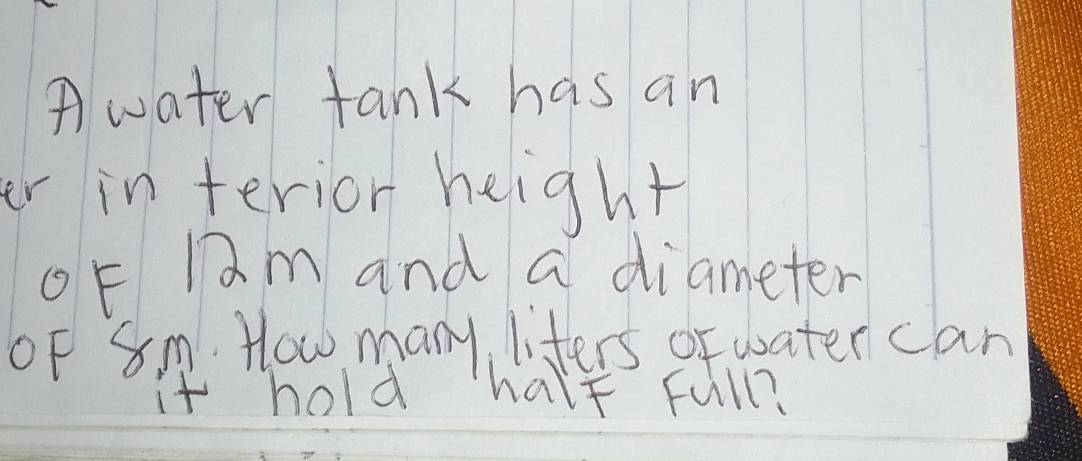 A water tank has an
er in terior height
OF 12m and a diameter
OF 8m. How many liters of water can
it hold half Full?